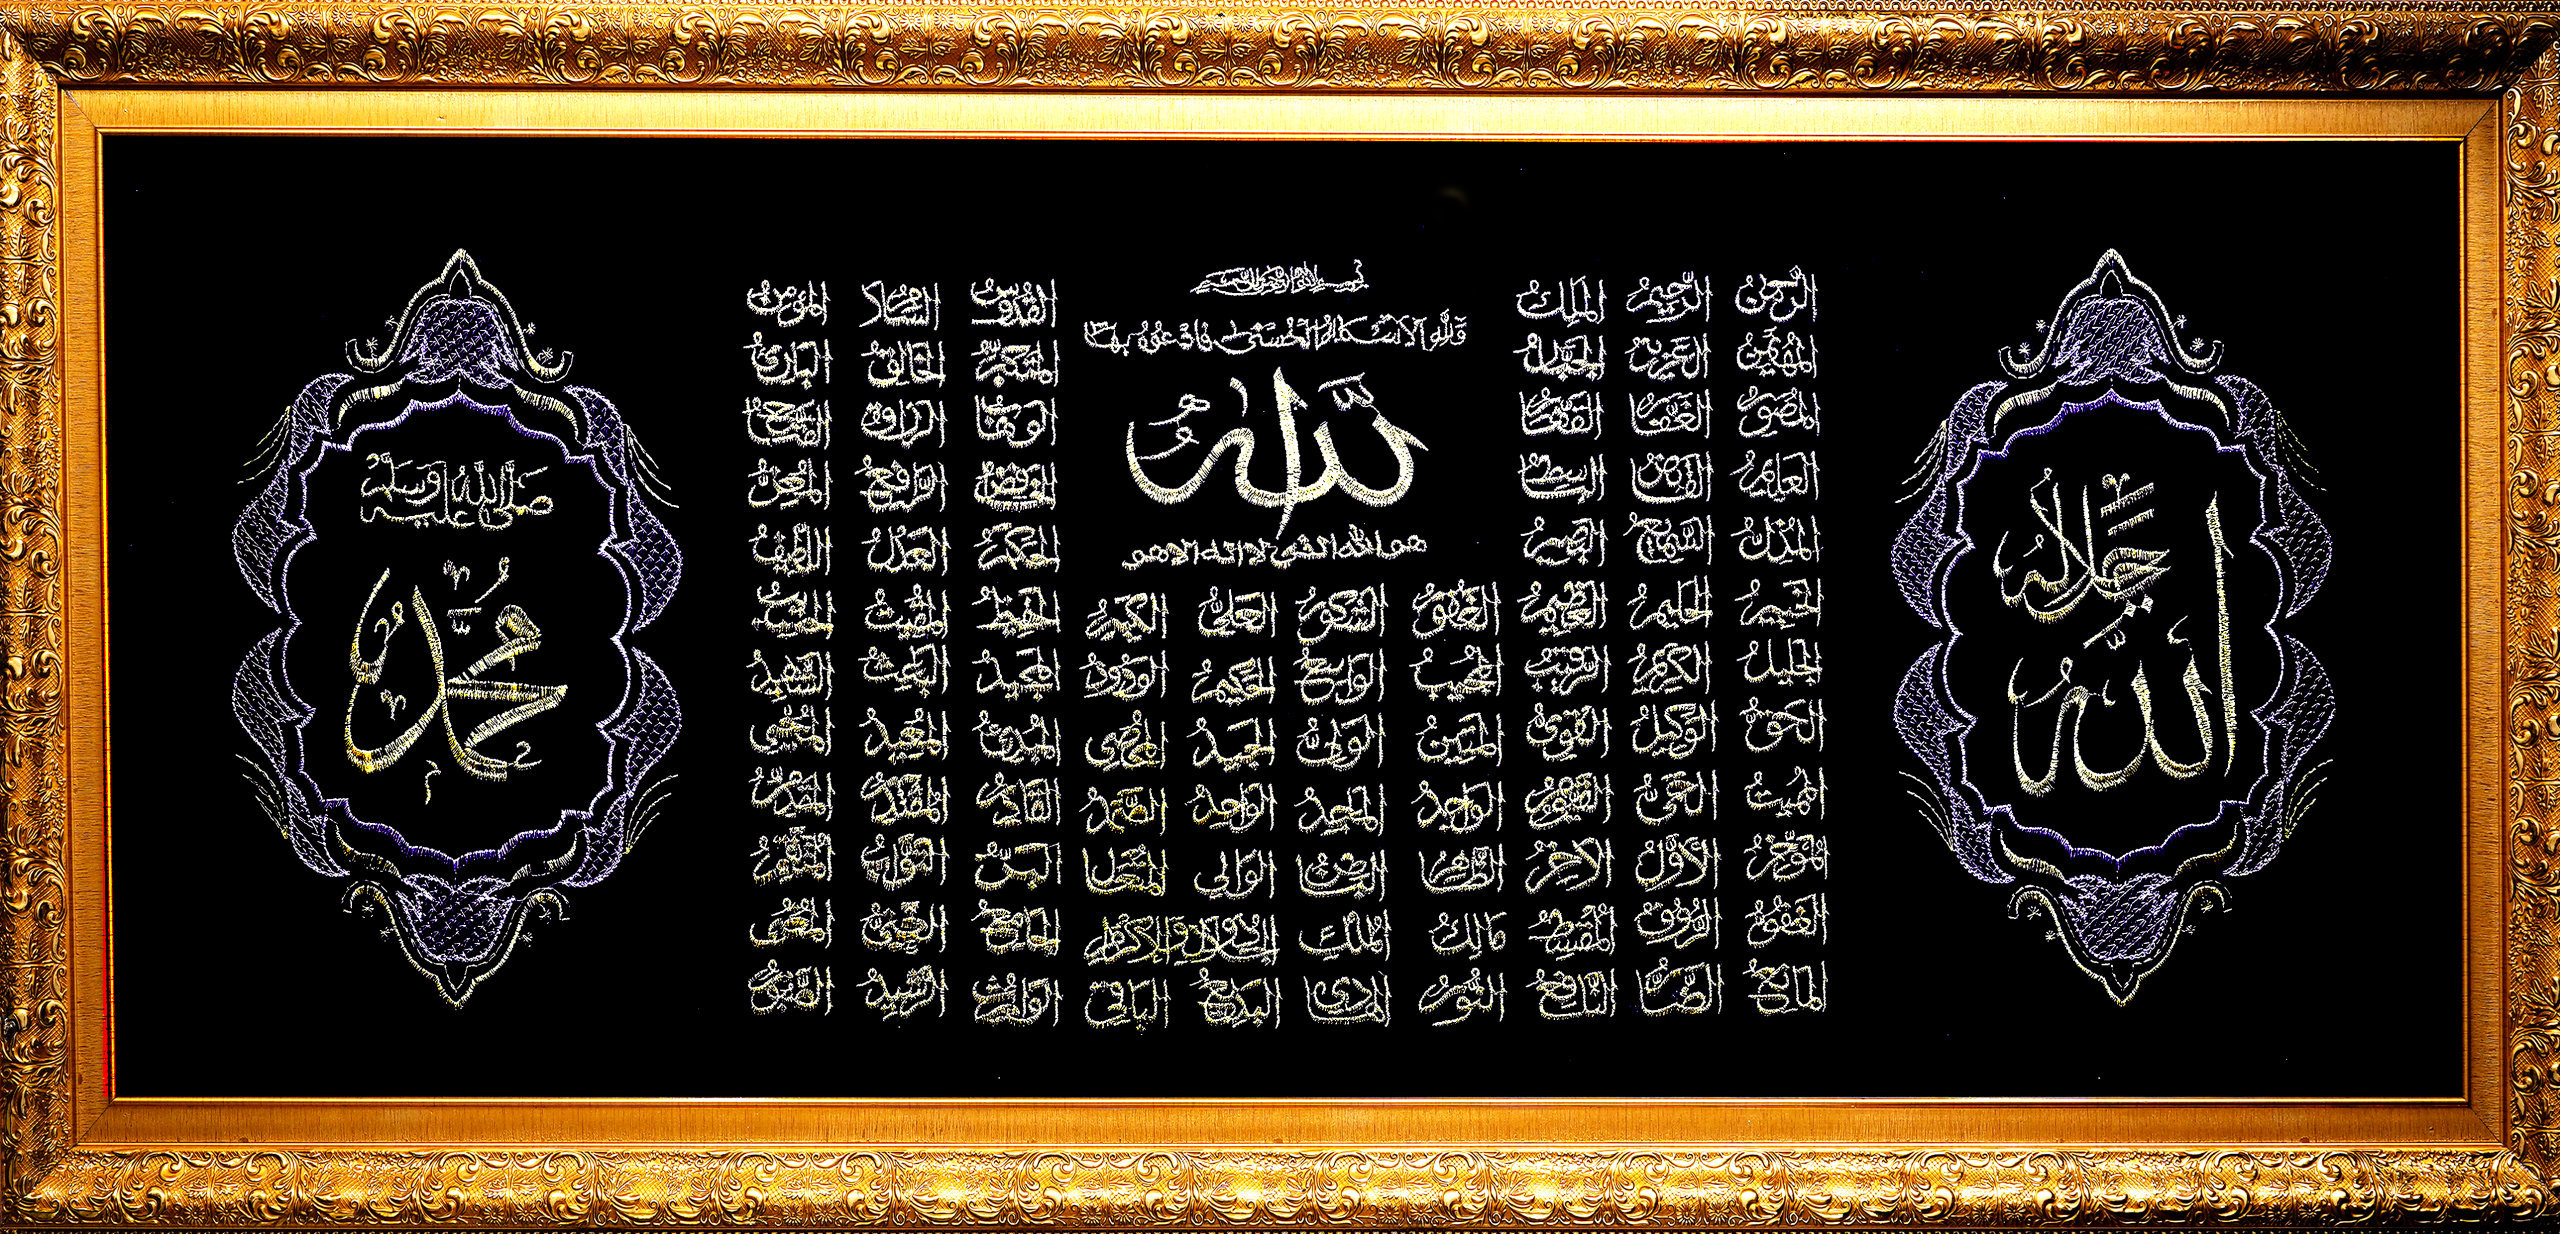 الله جل جلاله
بسم الله الرحمن الرحيم
ولله الاسماء الحسنى فادعوه بها
الله
هو الله الذي لا اله الا هو
الرحمن الرحيم الملك القدوس السلام المؤمن
المهيمن العزيز الجبار المتكبر الخالق البارئ
المصور الغفار القهار الوهاب الرزاق الفتاح
العليم القابض الباسط الخافض الرافع المعز
المذل السميع البصير الحكم العدل اللطيف
الخبير الحليم العظيم الغفور الشكور العلي الكبير الحفيظ المقيت الحسيب
الجليل الكريم الرقيب المجيب الواسع الحكيم الودود المجيد الباعث الشهيد
الحق الوكيل القوي المتين الولي الحميد المحصي المبدئ المعيد المحيي
المميت الحي القيوم الواجد الماجد الواحد الصمد القادر المقتدر المقدم
المؤخر الاول الاخر الظاهر الباطن الوالي المتعال البر التواب المنتقم
العفو الرؤوف المقسط مالك الملك ذو الجلال والاكرام الجامع الغني المغني
المانع الضار النافع النور الهادي البديع الباقي الوارث الرشيد الصبور
صلى الله عليه وسلم
محمد